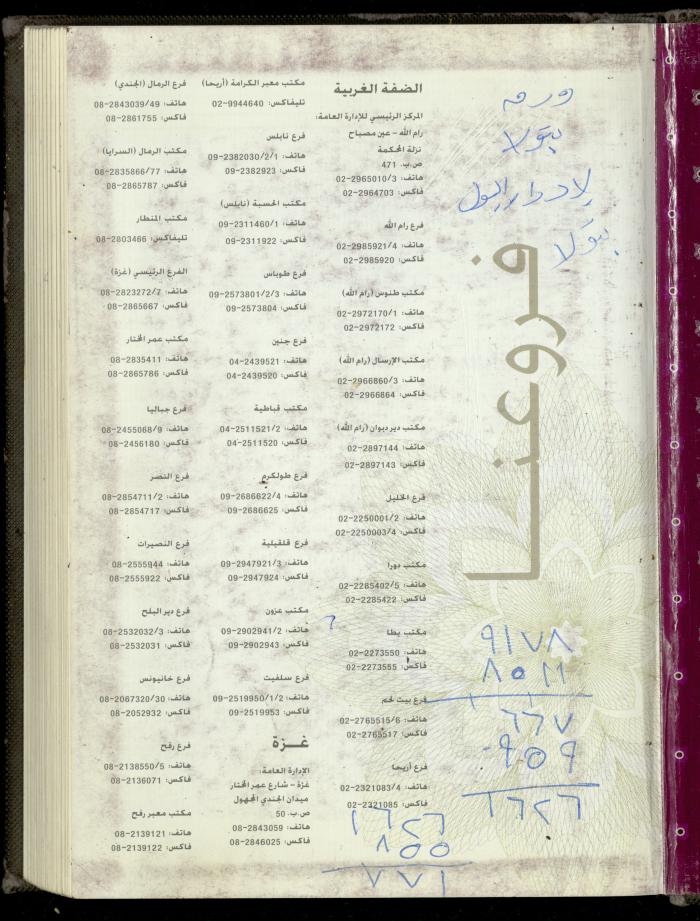 الضفة الغربية
المركز الرئيسي للإدارة العامة:
رام الله - عين مصباح
نزلة المحكمة
ص.ب. 471
هاتف: 02-2965010/3
فاكس: 02-2964703
فرع رام الله
هاتف: 02-2985921/4
فاكس: 02-2985920
مكتب طنوس (رام الله)
هاتف: 02-2972170/1
فاكس: 02-2972172
مكتب الإرسال (رام الله)
هاتف: 02-2966860/3
فاكس: 02-2966864
مكتب دير دبوان (رام الله)
هاتف: 02-2897144
فاكس: 02-2897143
فرع الخليل
هاتف: 02-2250001/2
فاكس: 02-2250003/4
مكتب دورا
هاتف: 02-2285402/5
فاكس: 02-2285422
مكتب يطا
هاتف: 02-2273550
فاكس: 02-2273555
فرع بيت لحم
هاتف: 02-2765515/6
فاكس: 02-2765517
فرع أريحا
هاتف: 02-2321083/4
فاكس: 02-2321085
مكتب معبر الكرامة (أريحا)
تليفاكس: 02-9944640
فرع نابلس
هاتف: 09-2382030/2/1
فاكس: 09-2382923
مكتب الحسبة (نابلس)
هاتف: 09-2311460/1
فاكس: 09-2311922
فرع طوباس
هاتف: 09-2573801/2/3
فاكس: 09-2573804
فرع جنين
هاتف: 04-2439521
فاكس: 04-2439520
مكتب قباطية
هاتف: 04-2511521/2
فاكس: 04-2511520
فرع طولكرم
هاتف: 09-2686622/4
فاكس: 09-2686625
فرع قلقيلية
هاتف: 09-2947921/3
فاكس: 09-2947924
مكتب عزون
هاتف: 09-2902941/2
فاكس: 09-2902943
فرع سلفيت
هاتف: 09-2519950/1/2
فاكس: 09-2519953
غـزة
الإدارة العامة:
غزة - شارع عمر المختار
ميدان الجندي المجهول
ص.ب. 50
هاتف: 08-2843059
فاكس: 08-2846025
فرع الرمال (الجندي)
هاتف: 08-2843039/49
فاكس: 08-2861755
مكتب الرمال (السرايا)
هاتف: 08-2835866/77
فاكس: 08-2865787
مكتب المنطار
تليفاكس: 08-2803466
الفرع الرئيسي (غزة)
هاتف: 08-2823272/7
فاكس: 08-2865667
مكتب عمر المختار
هاتف: 08-2835411
فاكس: 08-2865786
فرع جباليا
هاتف: 08-2455068/9
فاكس: 08-2456180
فرع النصر
هاتف: 08-2854711/2
فاكس: 08-2854717
فرع النصيرات
هاتف: 08-2555944
فاكس: 08-2555922
فرع دير البلح
هاتف: 08-2532032/3
فاكس: 08-2532031
فرع خانيونس
هاتف: 08-2067320/30
فاكس: 08-2052932
فرع رفح
هاتف: 08-2138550/5
فاكس: 08-2136071
مكتب معبر رفح
هاتف: 08-2139121
فاكس: 08-2139122
فروعنــا
٩١٧٨
٨٥١١
٦٦٧
٩٥٩
١٦٢٦
١٦٢٦
٨٥٥
٧٧١